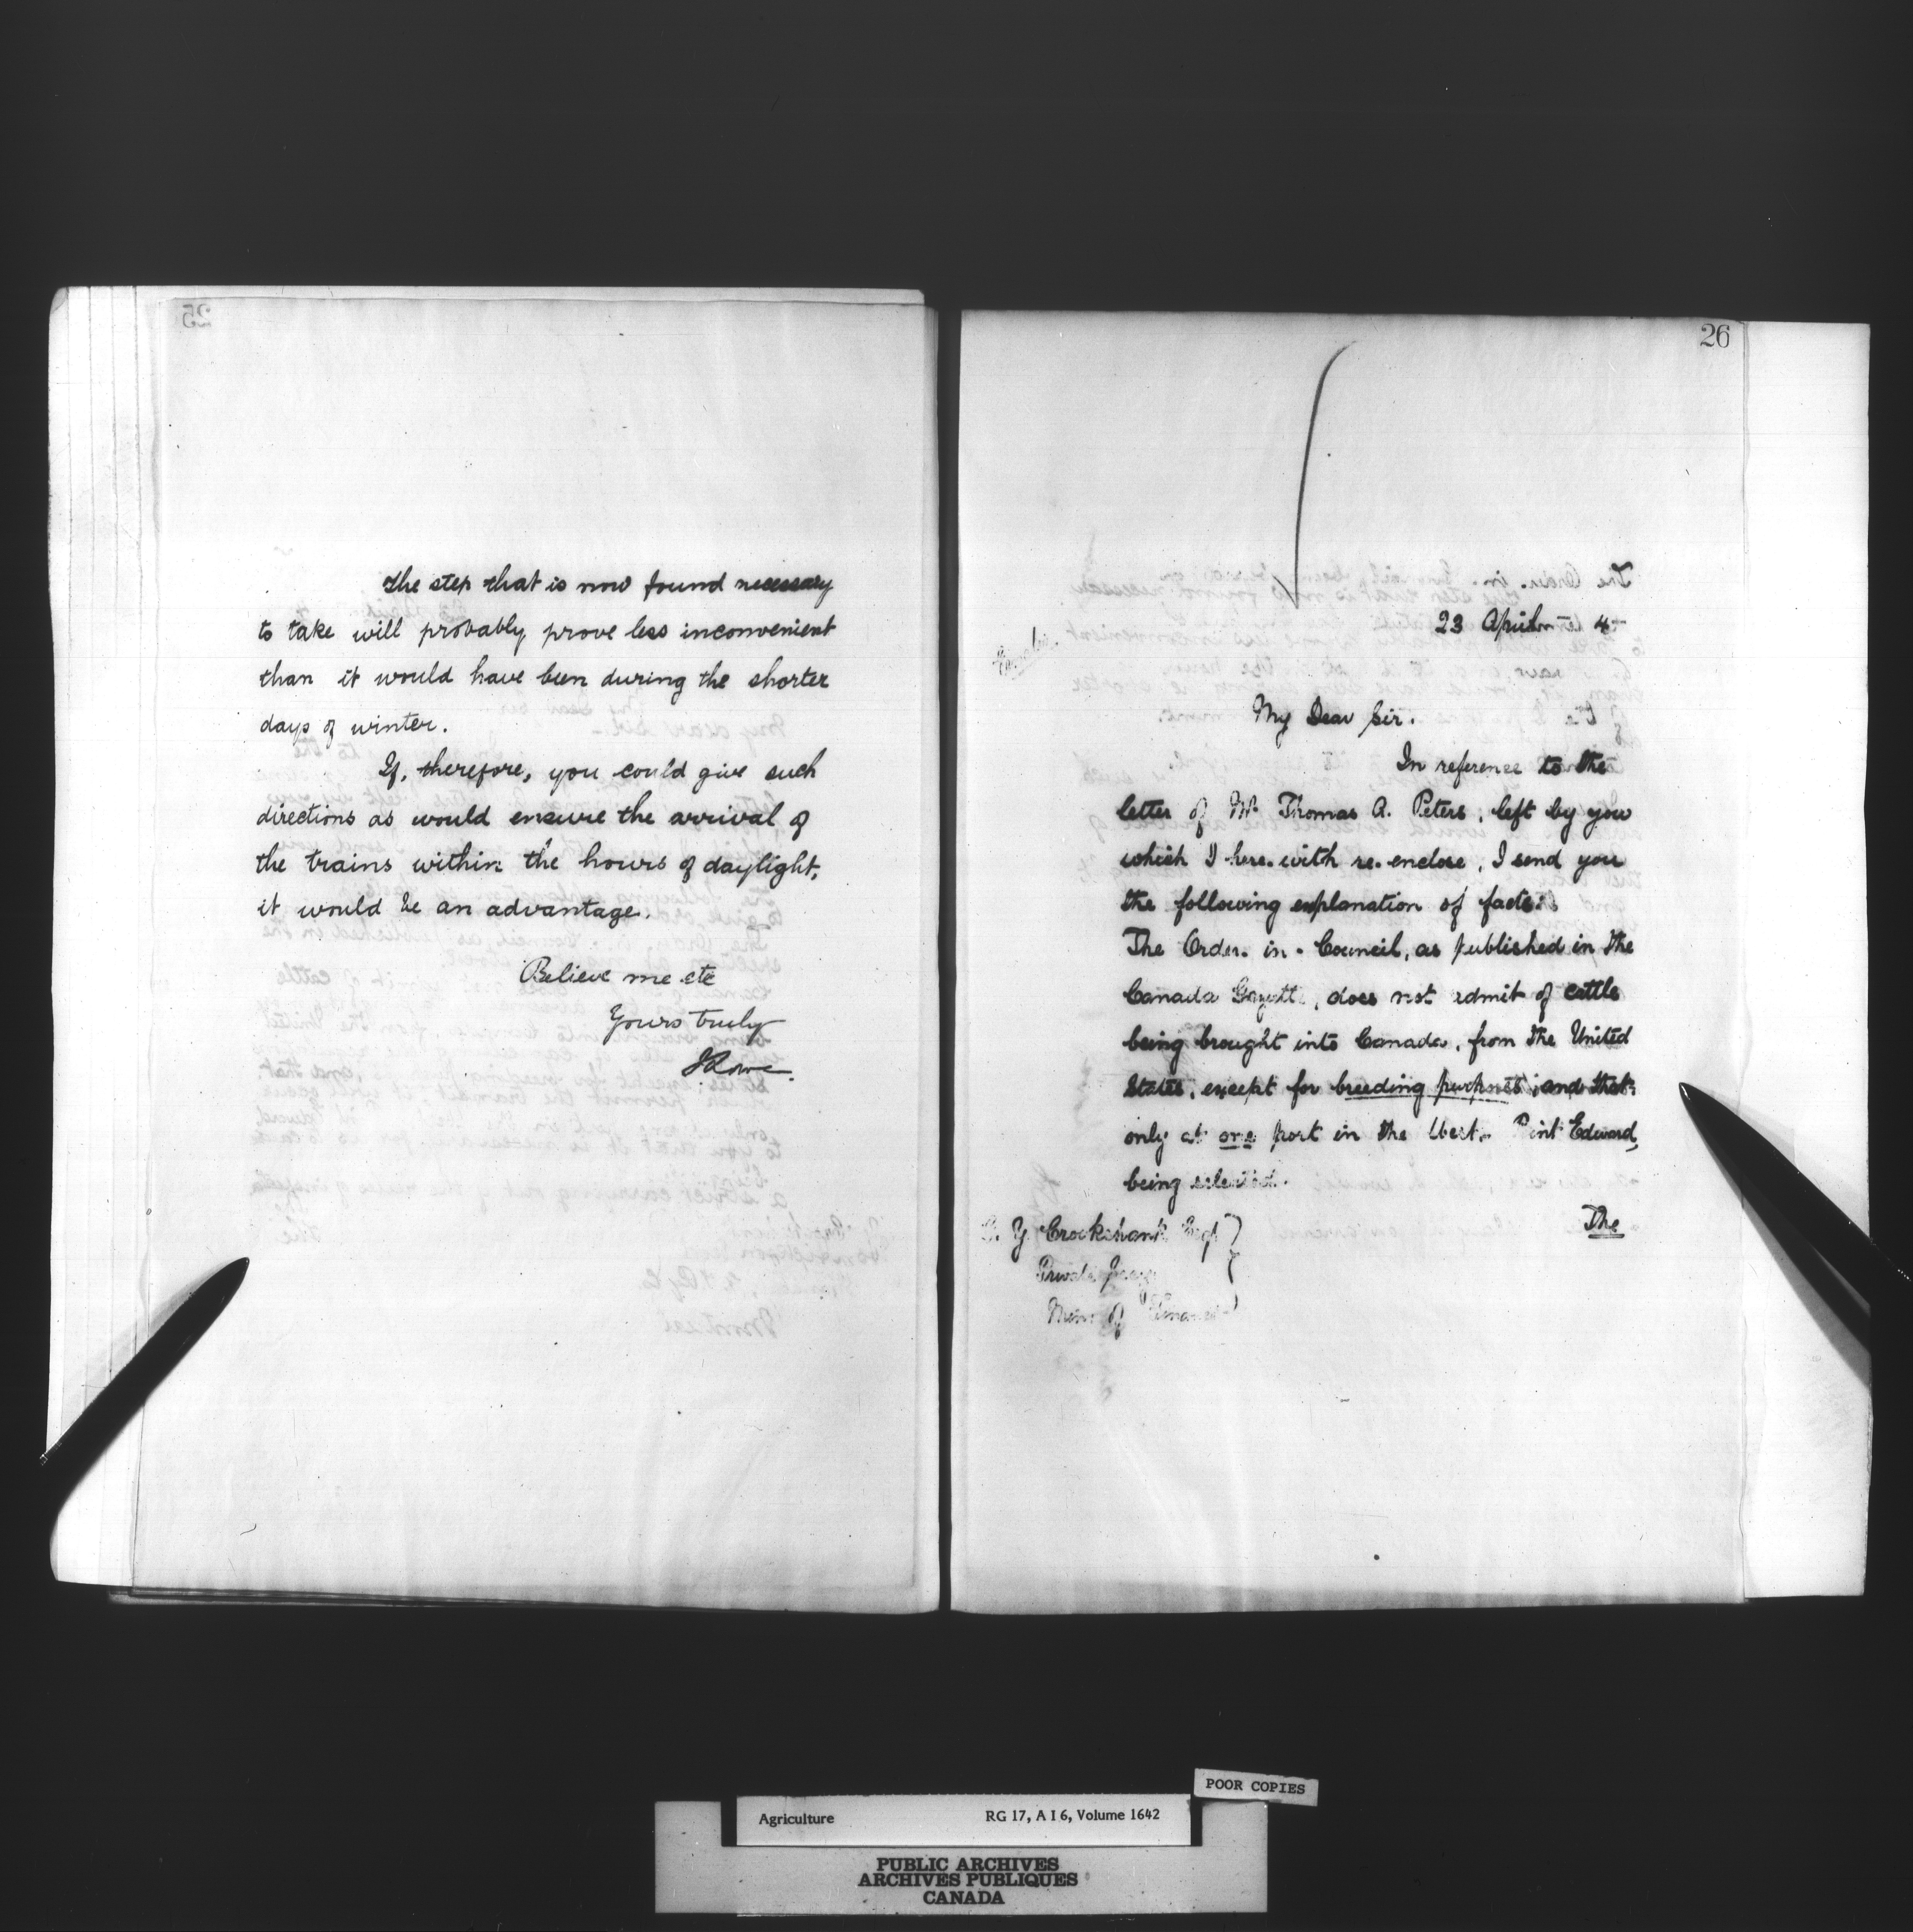 25
The step that is now found necessary
to take will probably prove less inconvenient
than it would have been during the shorter
days of winter.
If, therefore, you could give such
directions as would ensure the arrival of
the trains within the hours of daylight,
it would be an advantage.
Believe me etc
Yours truly
JLowe.
26
23 April 4
My Dear Sir.
In reference to the
letter of Mr Thomas A. Peters, left by you
which I here-with re-enclose, I send you
the following explanation of facts:
The Order-in-Council, as published in the
Canada Gazette, does not admit of cattle
being brought into Canada, from the United
States, except for breeding purposes; and that
only at one port in the West. Point Edward,
being selected.
The
Y Crookshank Esq
Private Secy
Min: of Finance
POOR COPIES
Agriculture RG 17, A I 6, Volume 1642
PUBLIC ARCHIVES
ARCHIVES PUBLIQUES
CANADA